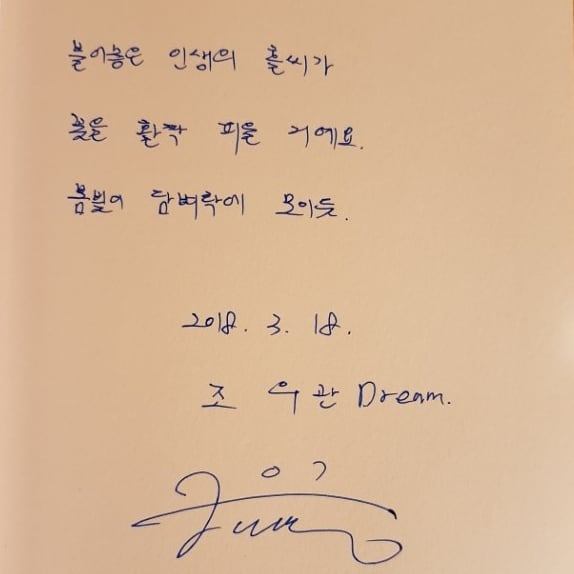 불어놓은 인생의 홀씨가
꽃을 활짝 피울 거예요.
봄빛이 담벼락에 모이듯.
2018. 3. 18.
조 의관 Dream.